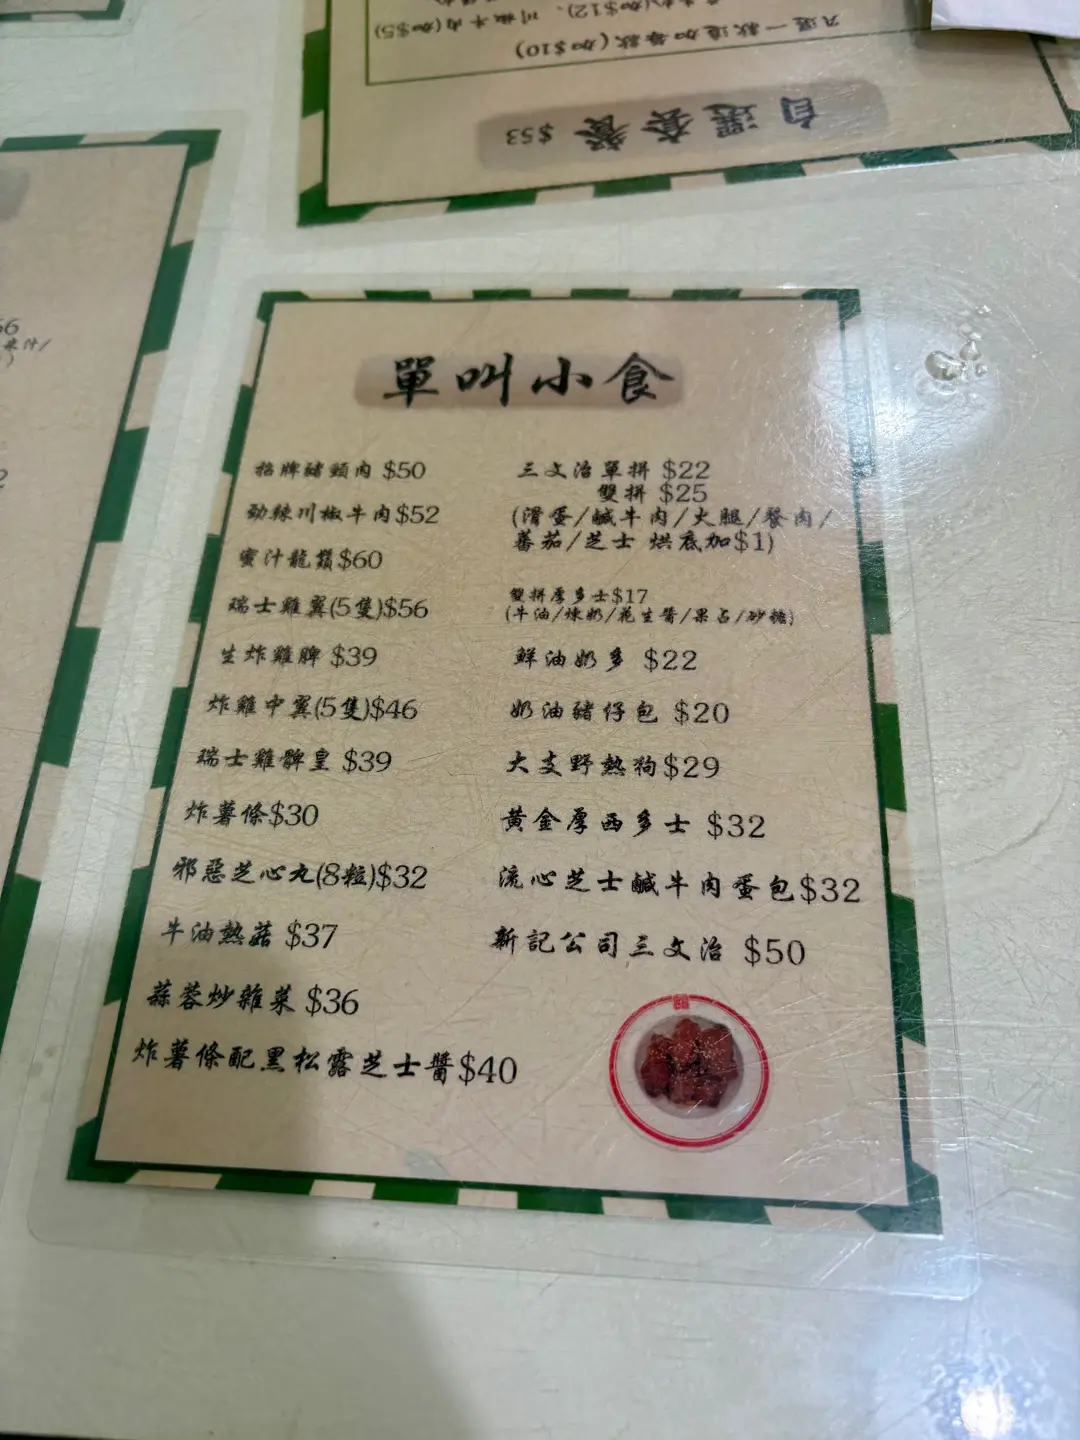 九選一款追加每款(加$10)
(加$12)、川椒牛肉(加$5)
自選套餐 $53
單叫小食
招牌豬頸肉 $50
勁辣川椒牛肉$52
蜜汁龍鬚$60
瑞士雞翼(5隻)$56
生炸雞髀 $39
炸雞中翼(5隻)$46
瑞士雞髀皇 $39
炸薯條$30
邪惡芝心丸(8粒)$32
牛油熱菇 $37
蒜蓉炒雜菜 $36
炸薯條配黑松露芝士醬$40
三文治單拼 $22
雙拼 $25
(滑蛋/鹹牛肉/火腿/餐肉/
蕃茄/芝士 烘底加$1)
雙拼厚多士$17
(牛油/煉奶/花生醬/果占/砂糖)
鮮油奶多 $22
奶油豬仔包 $20
大支野熱狗$29
黃金厚西多士 $32
流心芝士鹹牛肉蛋包$32
新記公司三文治 $50